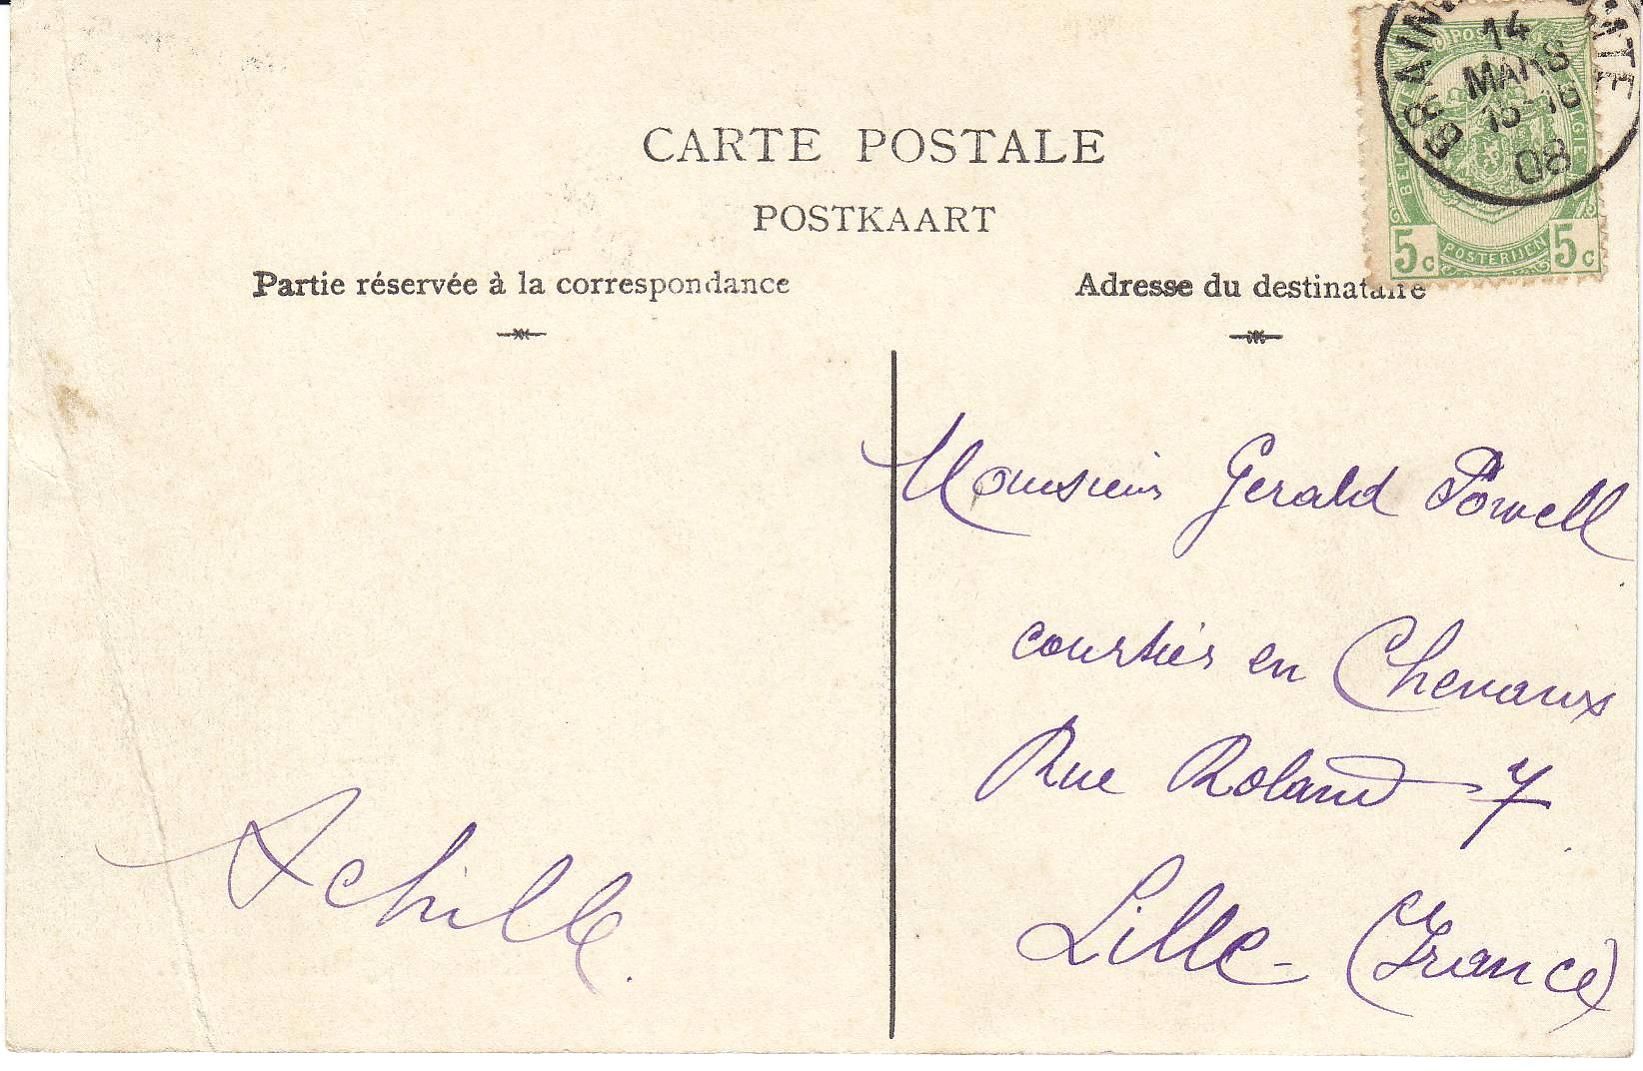 CARTE POSTALE
POSTKAART
Partie réservée à la correspondance
Adresse du destinataire
14
MARS
08
5c
POSTERIJEN
5c
Achille.
Monsieur Gerald Powell
courtier en Chevaux
Rue Roland 7
Lille (France)